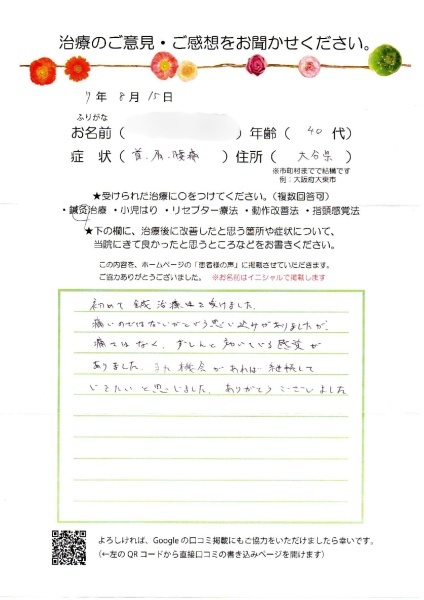 治療のご意見・ご感想をお聞かせください。
7年 8月 15日
ふりがな
お名前（　　　）年齢（ 40 代）
症 状（首、肩、腰痛）住所（ 大分県 ）
※市町村までで結構です
例：大阪府大東市
★受けられた治療に○をつけてください。（複数回答可）
・鍼灸治療 ・小児はり ・リセプター療法 ・動作改善法 ・指頭感覚法
★下の欄に、治療後に改善したと思う箇所や症状について、
当院にきて良かったと思うところなどをお書きください。
この内容を、ホームページの「患者様の声」に掲載させていただきます。
ご協力ありがとうございました。 ※お名前はイニシャルで掲載します
初めて鍼治療を受けました。
痛いのではないかという思い込みがありましたが、
痛くはなく、ずしんと効いている感覚が
ありました。また機会があれば継続して
いきたいと思いました。ありがとうございました
よろしければ、Googleの口コミ掲載にもご協力をいただけましたら幸いです。
（←左のQRコードから直接口コミの書き込みページを開けます）